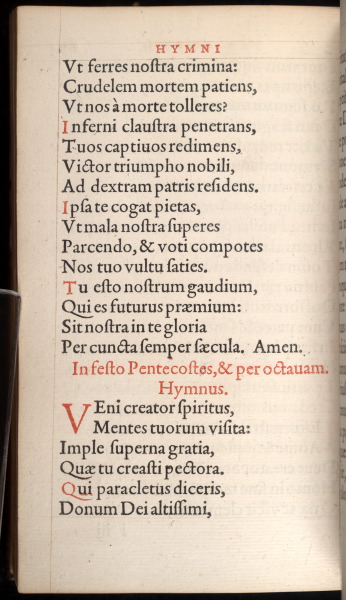 HYMNI
Vt ferres noſtra crimina:
Crudelem mortem patiens,
Vt nos à morte tolleres?
Inferni clauſtra penetrans,
Tuos captiuos redimens,
Victor triumpho nobili,
Ad dextram patris reſidens.
Ipſa te cogat pietas,
Vt mala noſtra ſuperes
Parcendo, & voti compotes
Nos tuo vultu ſaties.
Tu eſto noſtrum gaudium,
Qui es futurus præmium:
Sit noſtra in te gloria
Per cuncta ſemper ſæcula. Amen.
In feſto Pentecoſtes, & per octauam.
Hymnus.
VEni creator ſpiritus,
Mentes tuorum viſita:
Imple ſuperna gratia,
Quæ tu creaſti pectora.
Qui paracletus diceris,
Donum Dei altiſſimi,